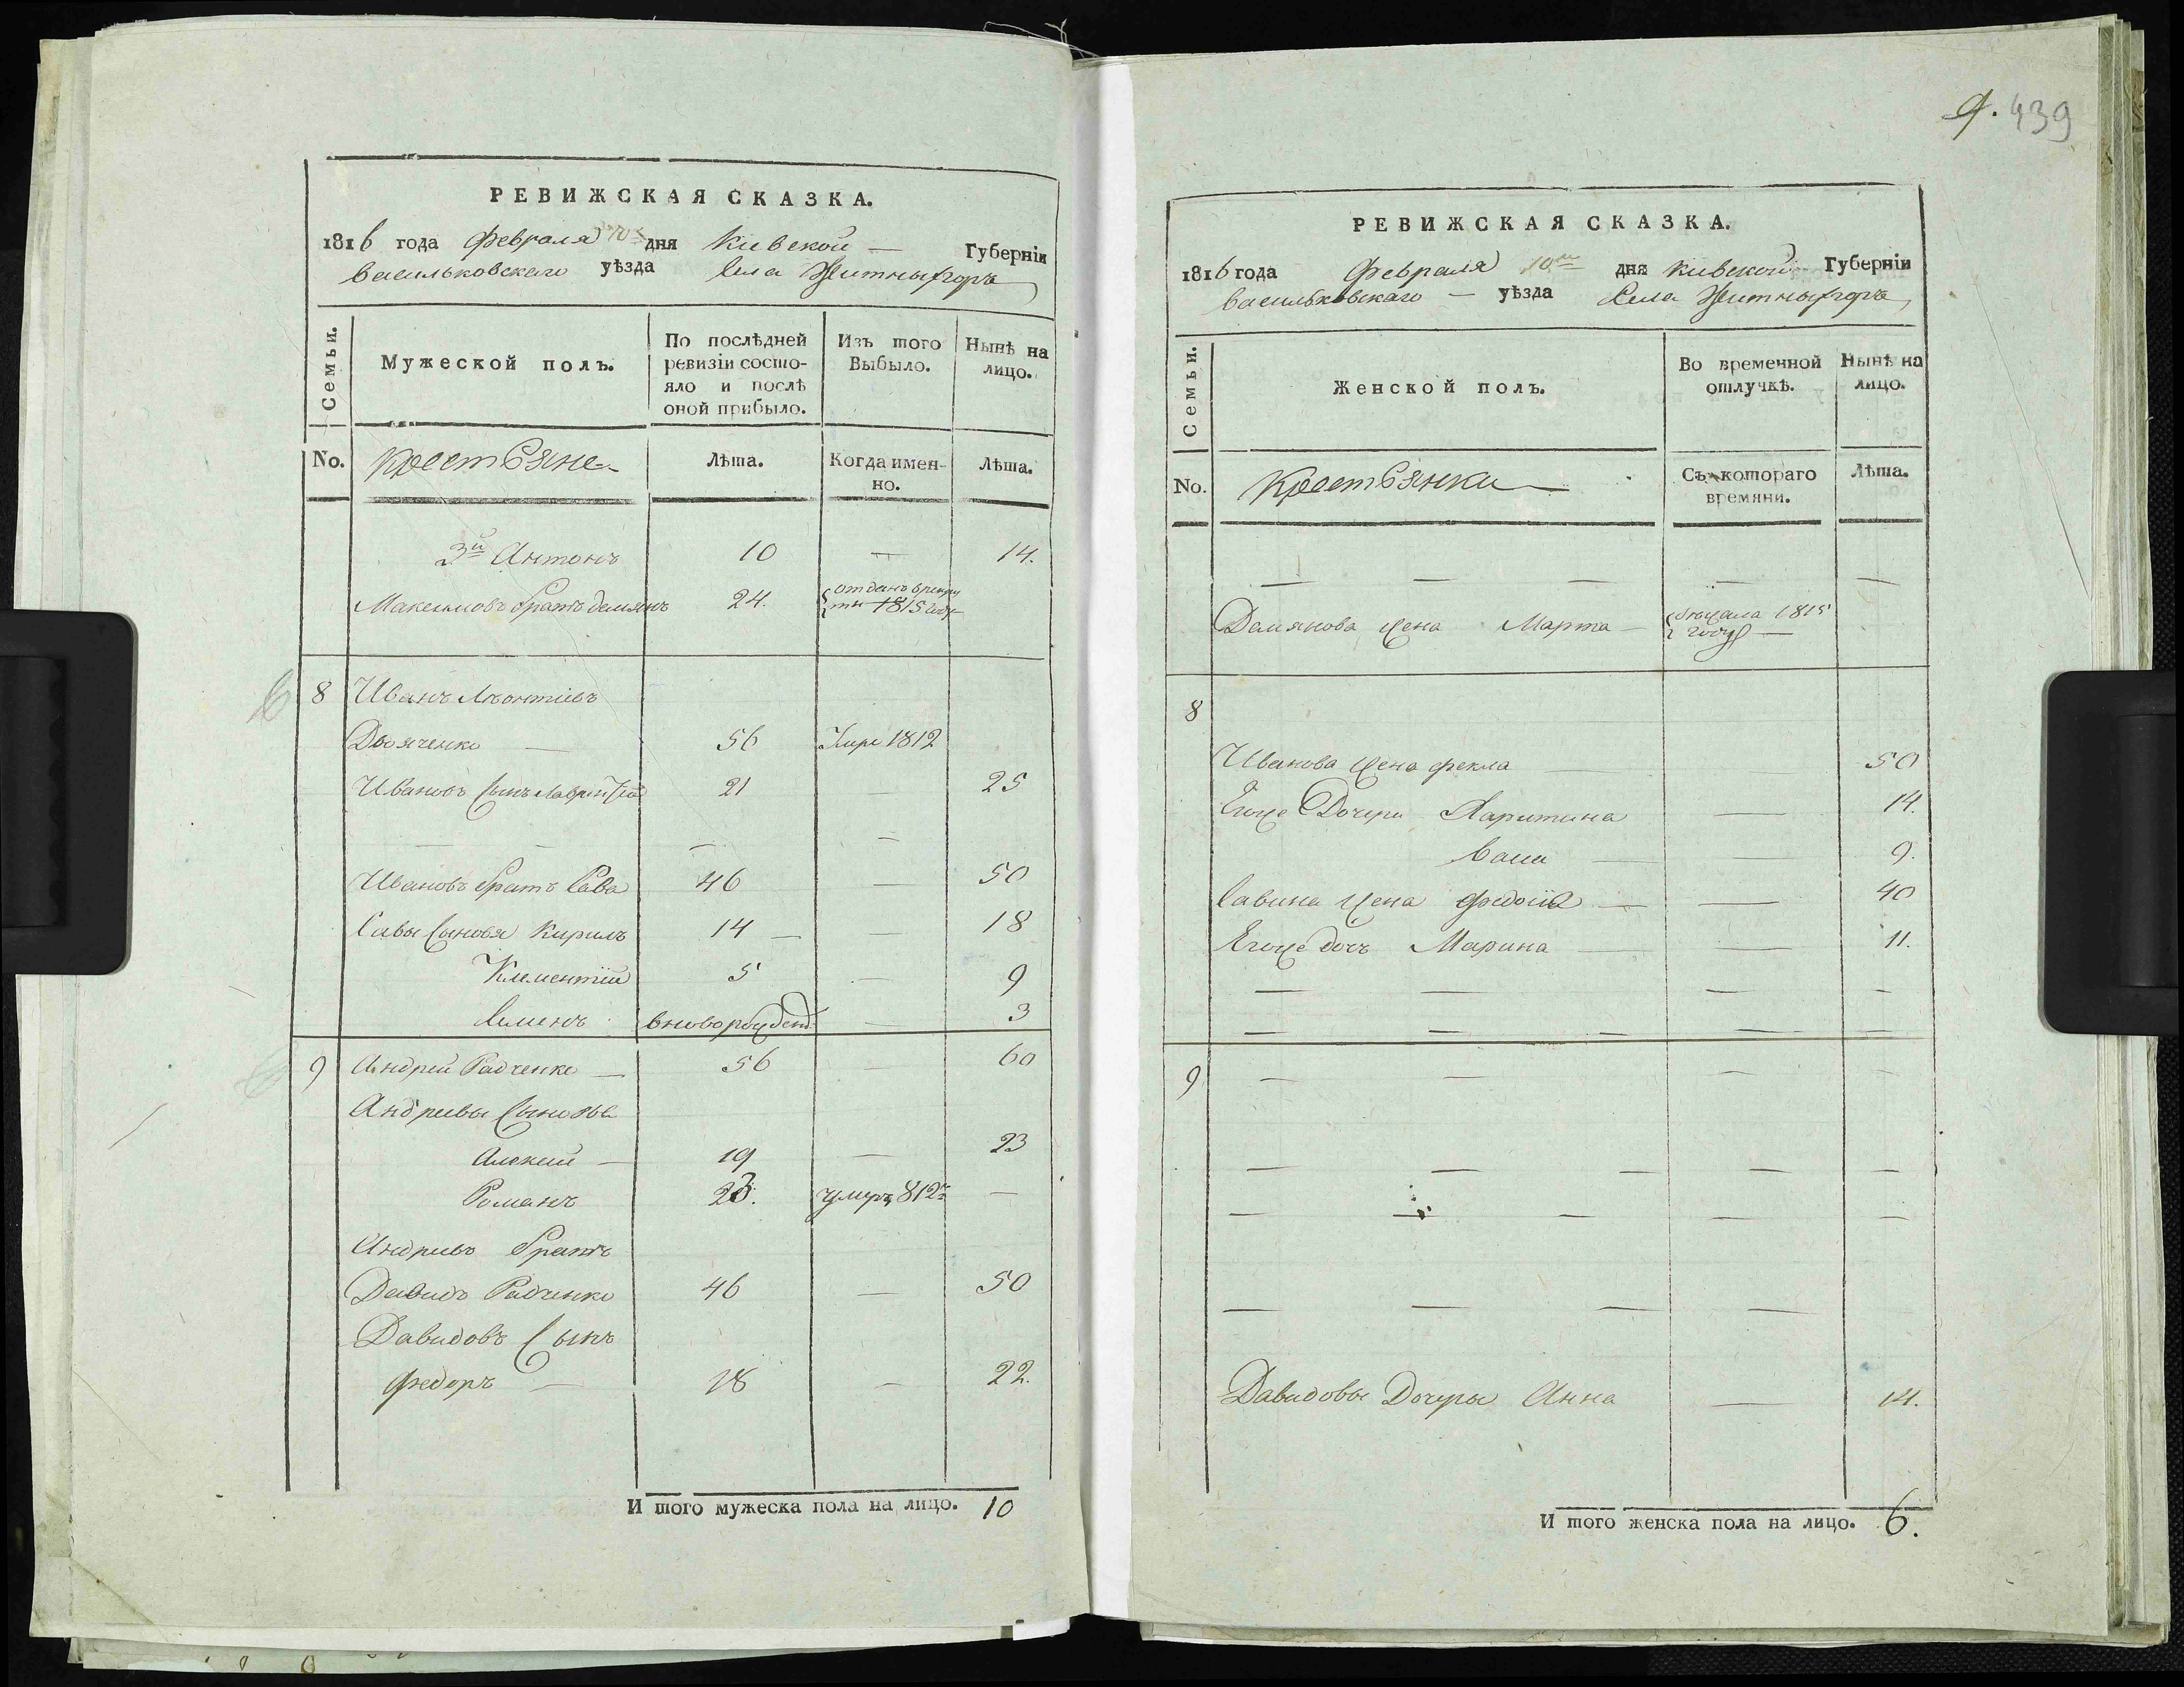 РЕВИЖСКАЯ СКАЗКА.
1816 года февраля 10 дня Киевской — Губернїи
васильковскаго уѣзда села Житныхгоръ
Семьи.
Мужеской полъ.
По послѣдней ревизїи состояло и послѣ оной прибыло.
Изъ того Выбыло.
Нынѣ на лицо.
No. крестьяне
Лѣта.
Когда именно.
Лѣта.
3й Антонъ 10 — 14.
Максимовъ братъ демянъ 24. отданъ в рекруты 1815 году
8 Иванъ Леонтіевъ
Дьяченко — 56 Умре 1812
Ивановъ сынъ лаврентій 21 — 25
— — — —
Ивановъ братъ Сава 46 — 50
Савы сыновя Кирилъ 14 — — 18
Климентїй 5 — 9
Семенъ вноворожден — 3
9 Андрей Радченко — 56 — 60
Андреевы сыновья
Алексей — 19 — 23
Романъ 23. умеръ 812 —
Андреевъ братъ
Давидъ Радченко 46 — 50
Давидовъ Сынъ
федоръ — 18 — 22.
И того мужеска пола на лицо. 10
439
РЕВИЖСКАЯ СКАЗКА.
1816 года февраля 10 дня Киевской Губернїи
васильковскаго — уѣзда Села Житныхгоръ
Семьи.
Женской полъ.
Во временной отлучкѣ.
Нынѣ на лицо.
No. крестьянки
Съ котораго времяни.
Лѣта.
— — — — —
Дамянова жена Марта — бежала 1815 году —
8
Иванова жена фекла — — 50
Егоже Дочери Харитина — 14.
— — 9.
Савина жена федосія — — 40
Егоже дочъ Марина — — 11.
— — — — —
— — — — —
9 — — — —
— — — — —
— — — — —
— — — —
Давидовы Дочеры Анна — 14.
И того женска пола на лицо. 6.